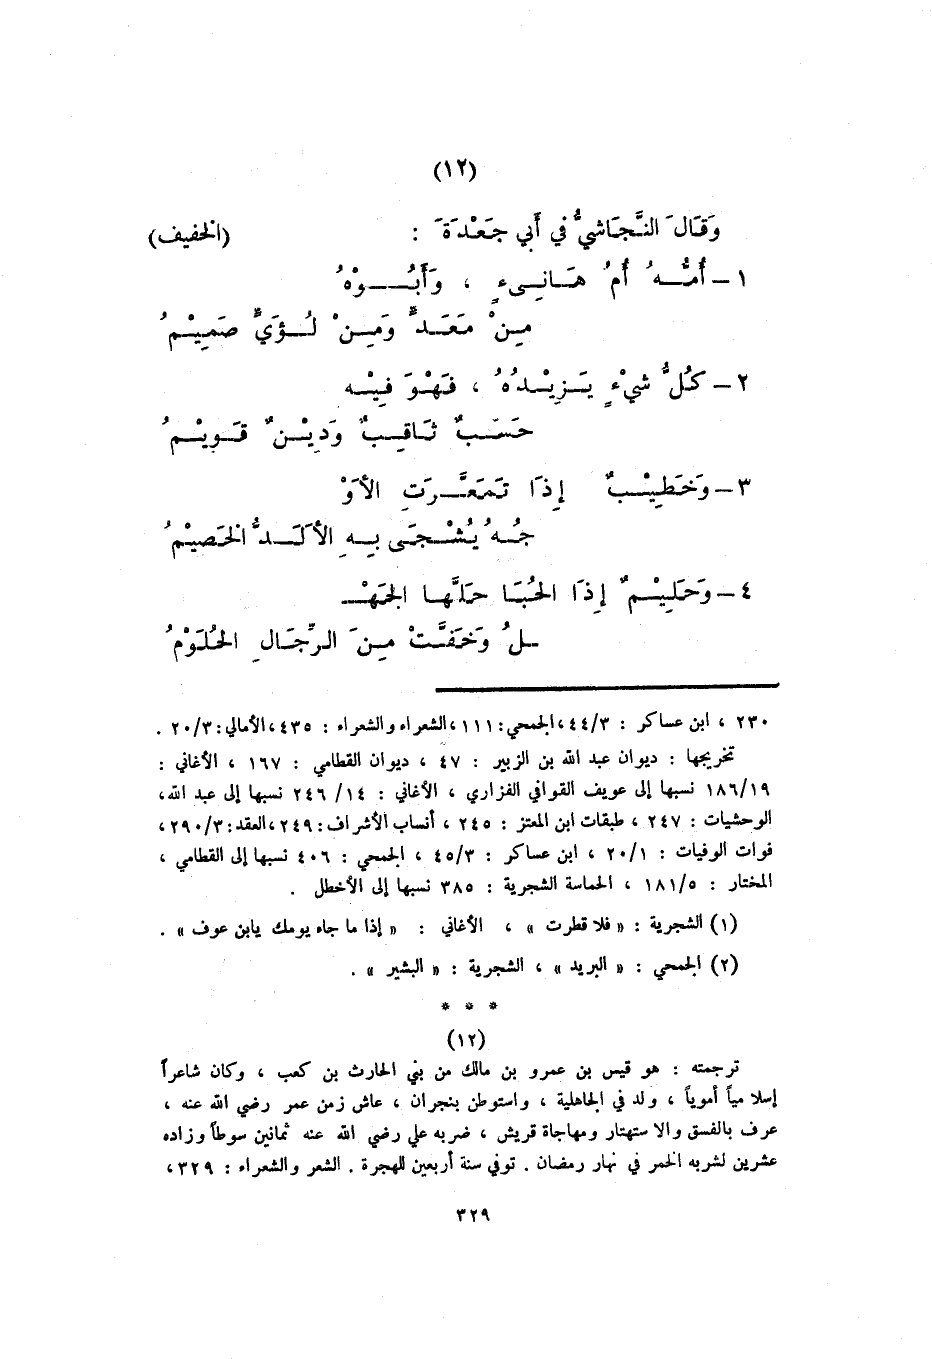 (١٢)
وَقَالَ النَّجَاشيُّ في أَبي جَعْدَةَ : (الخفيف)
١ – أُمُّـهُ أُمُ هَـانِـىءٍ ، وَأَبُـــوْهُ
مِـنْ مَعَـدٍّ وَمِـنْ لُـؤَيٍّ صَمِيْـمُ
٢ – كُلُّ شيْءٍ يَـزِيْـدُهُ ، فَـهْوَ فِيْـه
حَسَـبٌ ثَـاقِـبٌ وَدِيْـنٌ قَـوِيْـمُ
٣ – وَخَطِيْـبٌ إِذَا تَـمَعَّـرَتِ الأَوْ
جُـهُ يُشْـجَـى بِـهِ الأَلَـدُّ الخَصِيْمُ
٤ – وَحَلِيْـمٌ إِذَا الحُبَـا حَلَّهـا الجَهْـ
ـلُ وَخَفَّـتْ مِـنَ الـرِّجَـالِ الحُلُوْمُ
٢٣٠ ، ابن عساكر : ٤٤/٣، الجمحي : ١١١، الشعراء والشعراء : ٤٣٥، الأمالي : ٢٠/٣ .
تخريجها : ديوان عبد الله بن الزبير : ٤٧ ، ديوان القطامي : ١٦٧ ، الأغاني :
١٨٦/١٩ نسبها إلى عويف القوافي الفزاري ، الأغاني : ١٤/ ٢٤٦ نسبها إلى عبد الله،
الوحشيات : ٢٤٧ ، طبقات ابن المعتز : ٢٤٥ ، أنساب الأشراف : ٢٤٩، العقد : ٢٩٠/٣،
فوات الوفيات : ٢٠/١ ، ابن عساكر : ٤٥/٣ ، الجمحي : ٤٠٦ نسبها إلى القطامي ،
المختار : ١٨١/٥ ، الحماسة الشجرية : ٣٨٥ نسبها إلى الأخطل .
(١) الشجرية : « فلا قطرت » ، الأغاني : « إذا ما جاء يومك يابن عوف » .
(٢) الجمحي : « البريد » ، الشجرية : « البشير » .
* * *
(١٢)
ترجمته : هو قيس بن عمرو بن مالك من بني الحارث بن كعب ، وكان شاعراً
إسلامياً أموياً ، ولد في الجاهلية ، واستوطن بنجران ، عاش زمن عمر رضي الله عنه ،
عرف بالفسق والاستهتار ومهاجاة قريش ، ضربه علي رضي الله عنه ثمانين سوطاً وزاده
عشرين لشربه الخمر في نهار رمضان . توفي سنة أربعين للهجرة . الشعر والشعراء : ٣٢٩،
٣٢٩